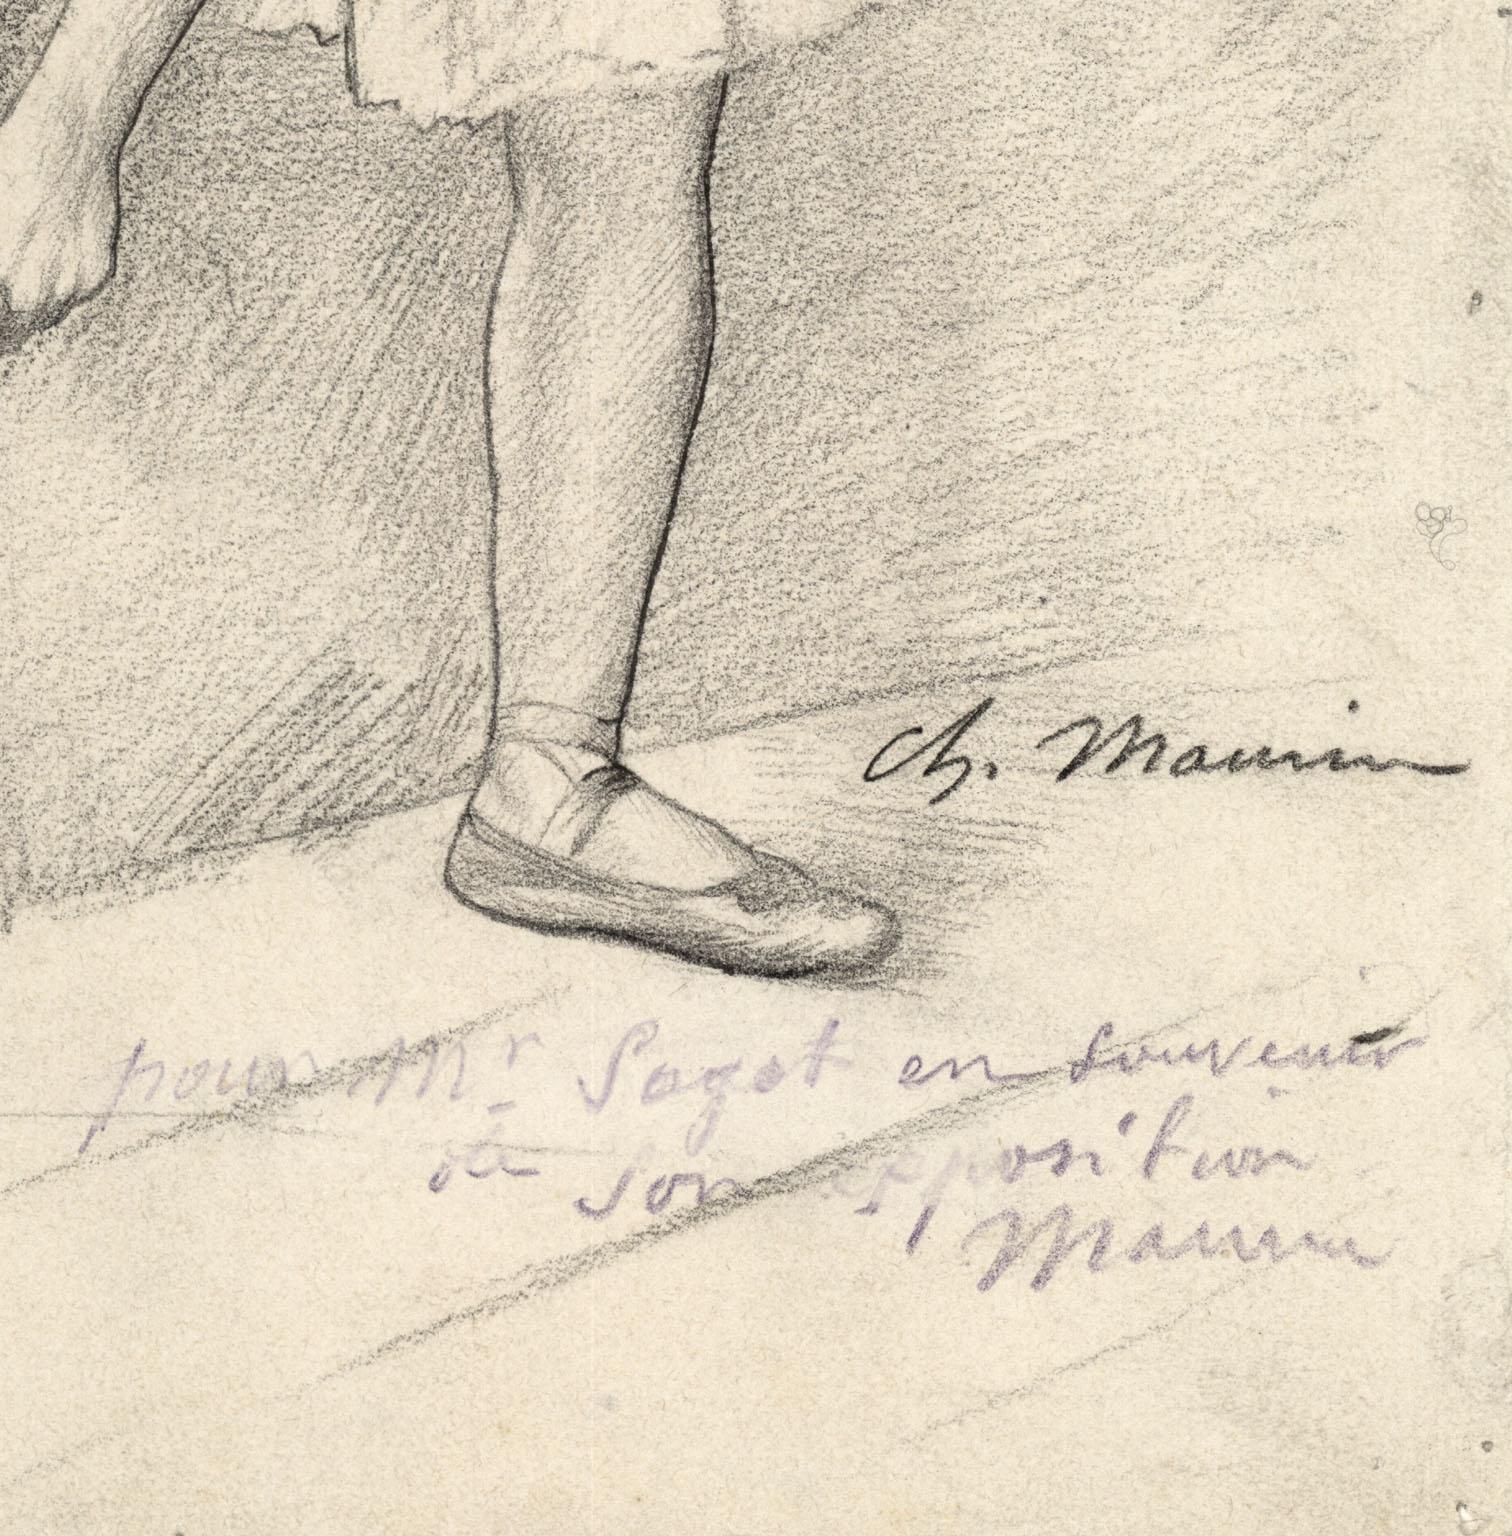 Ch. Maurin
pour Mr Sagot en souvenir
de son exposition
Maurin